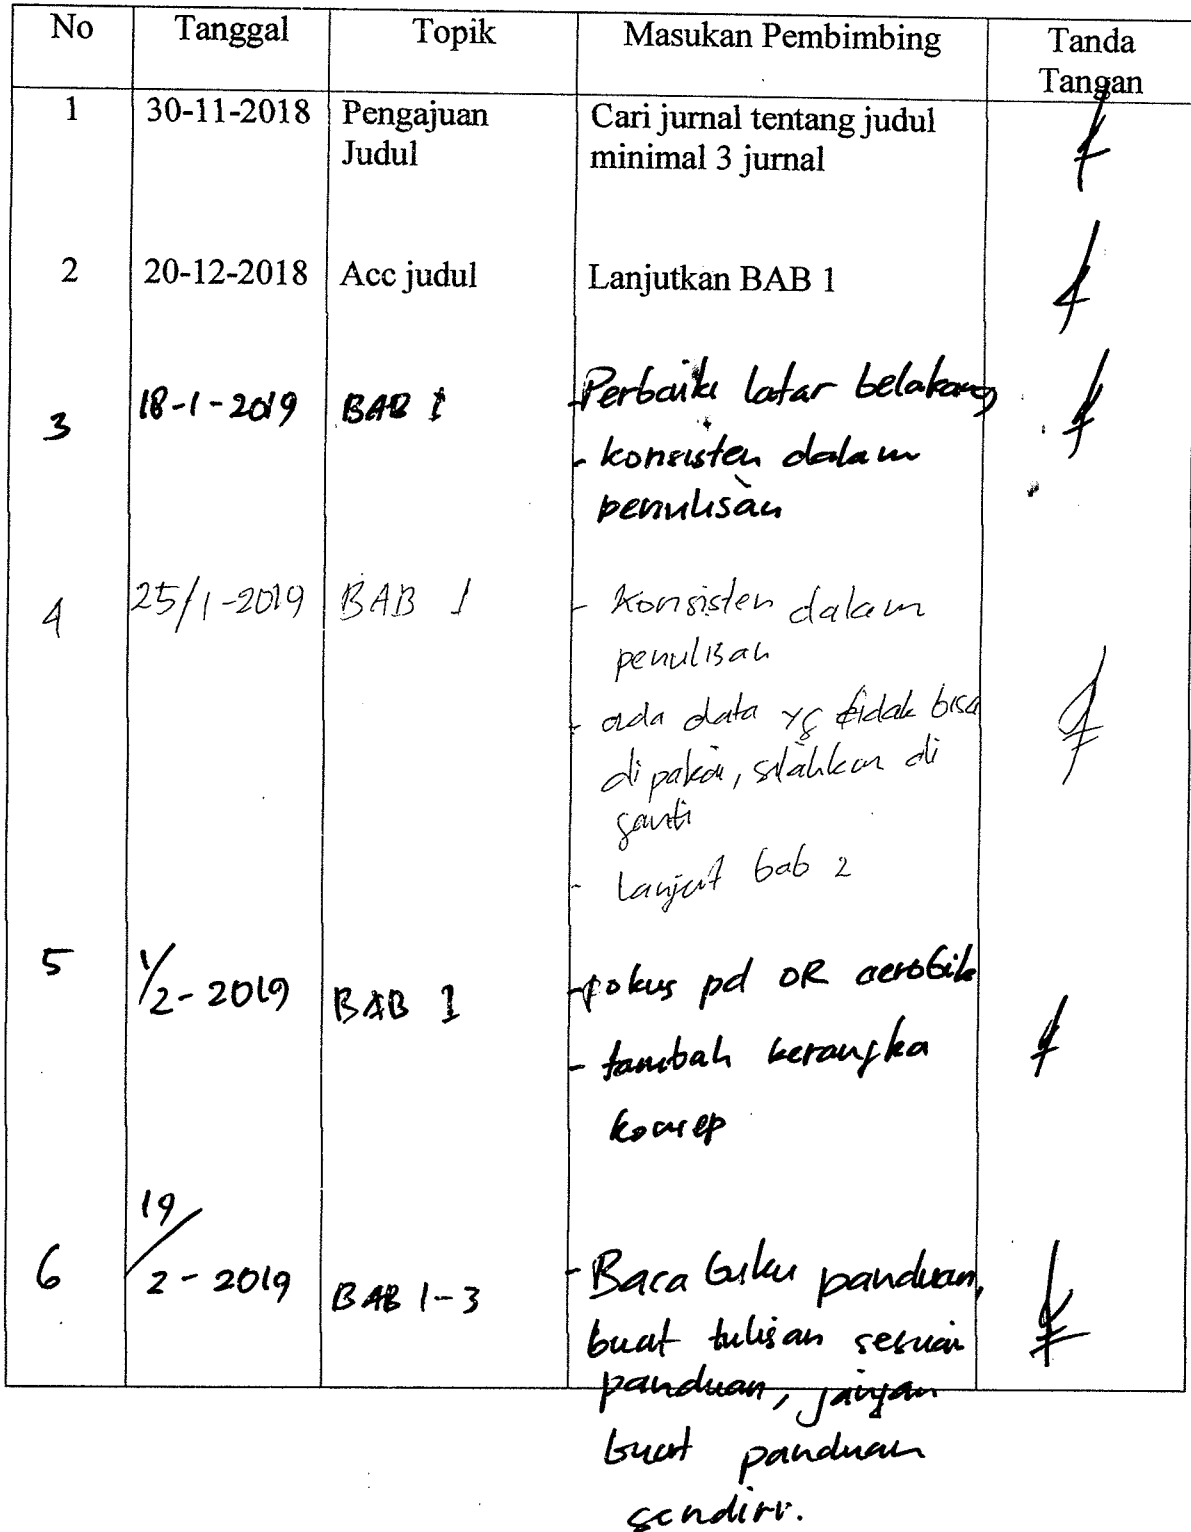 No Tanggal Topik Masukan Pembimbing Tanda
Tangan
1 30-11-2018 Pengajuan Cari jurnal tentang judul
Judul minimal 3 jurnal
2 20-12-2018 Acc judul Lanjutkan BAB 1
3 18-1-2019 BAB 1 - Perbaiki latar belakang
- konsisten dalam
penulisan
4 25/1-2019 BAB 1 - Konsisten dalam
penulisan
- ada data yg tidak bisa
di pakai, silahkan di
ganti
- Lanjut bab 2
5 1/2-2019 BAB 1 - fokus pd OR aerobik
- tambah kerangka
konsep
6 19/2-2019 BAB 1-3 - Baca buku panduan,
buat tulisan sesuai
panduan, jangan
buat panduan
sendiri.